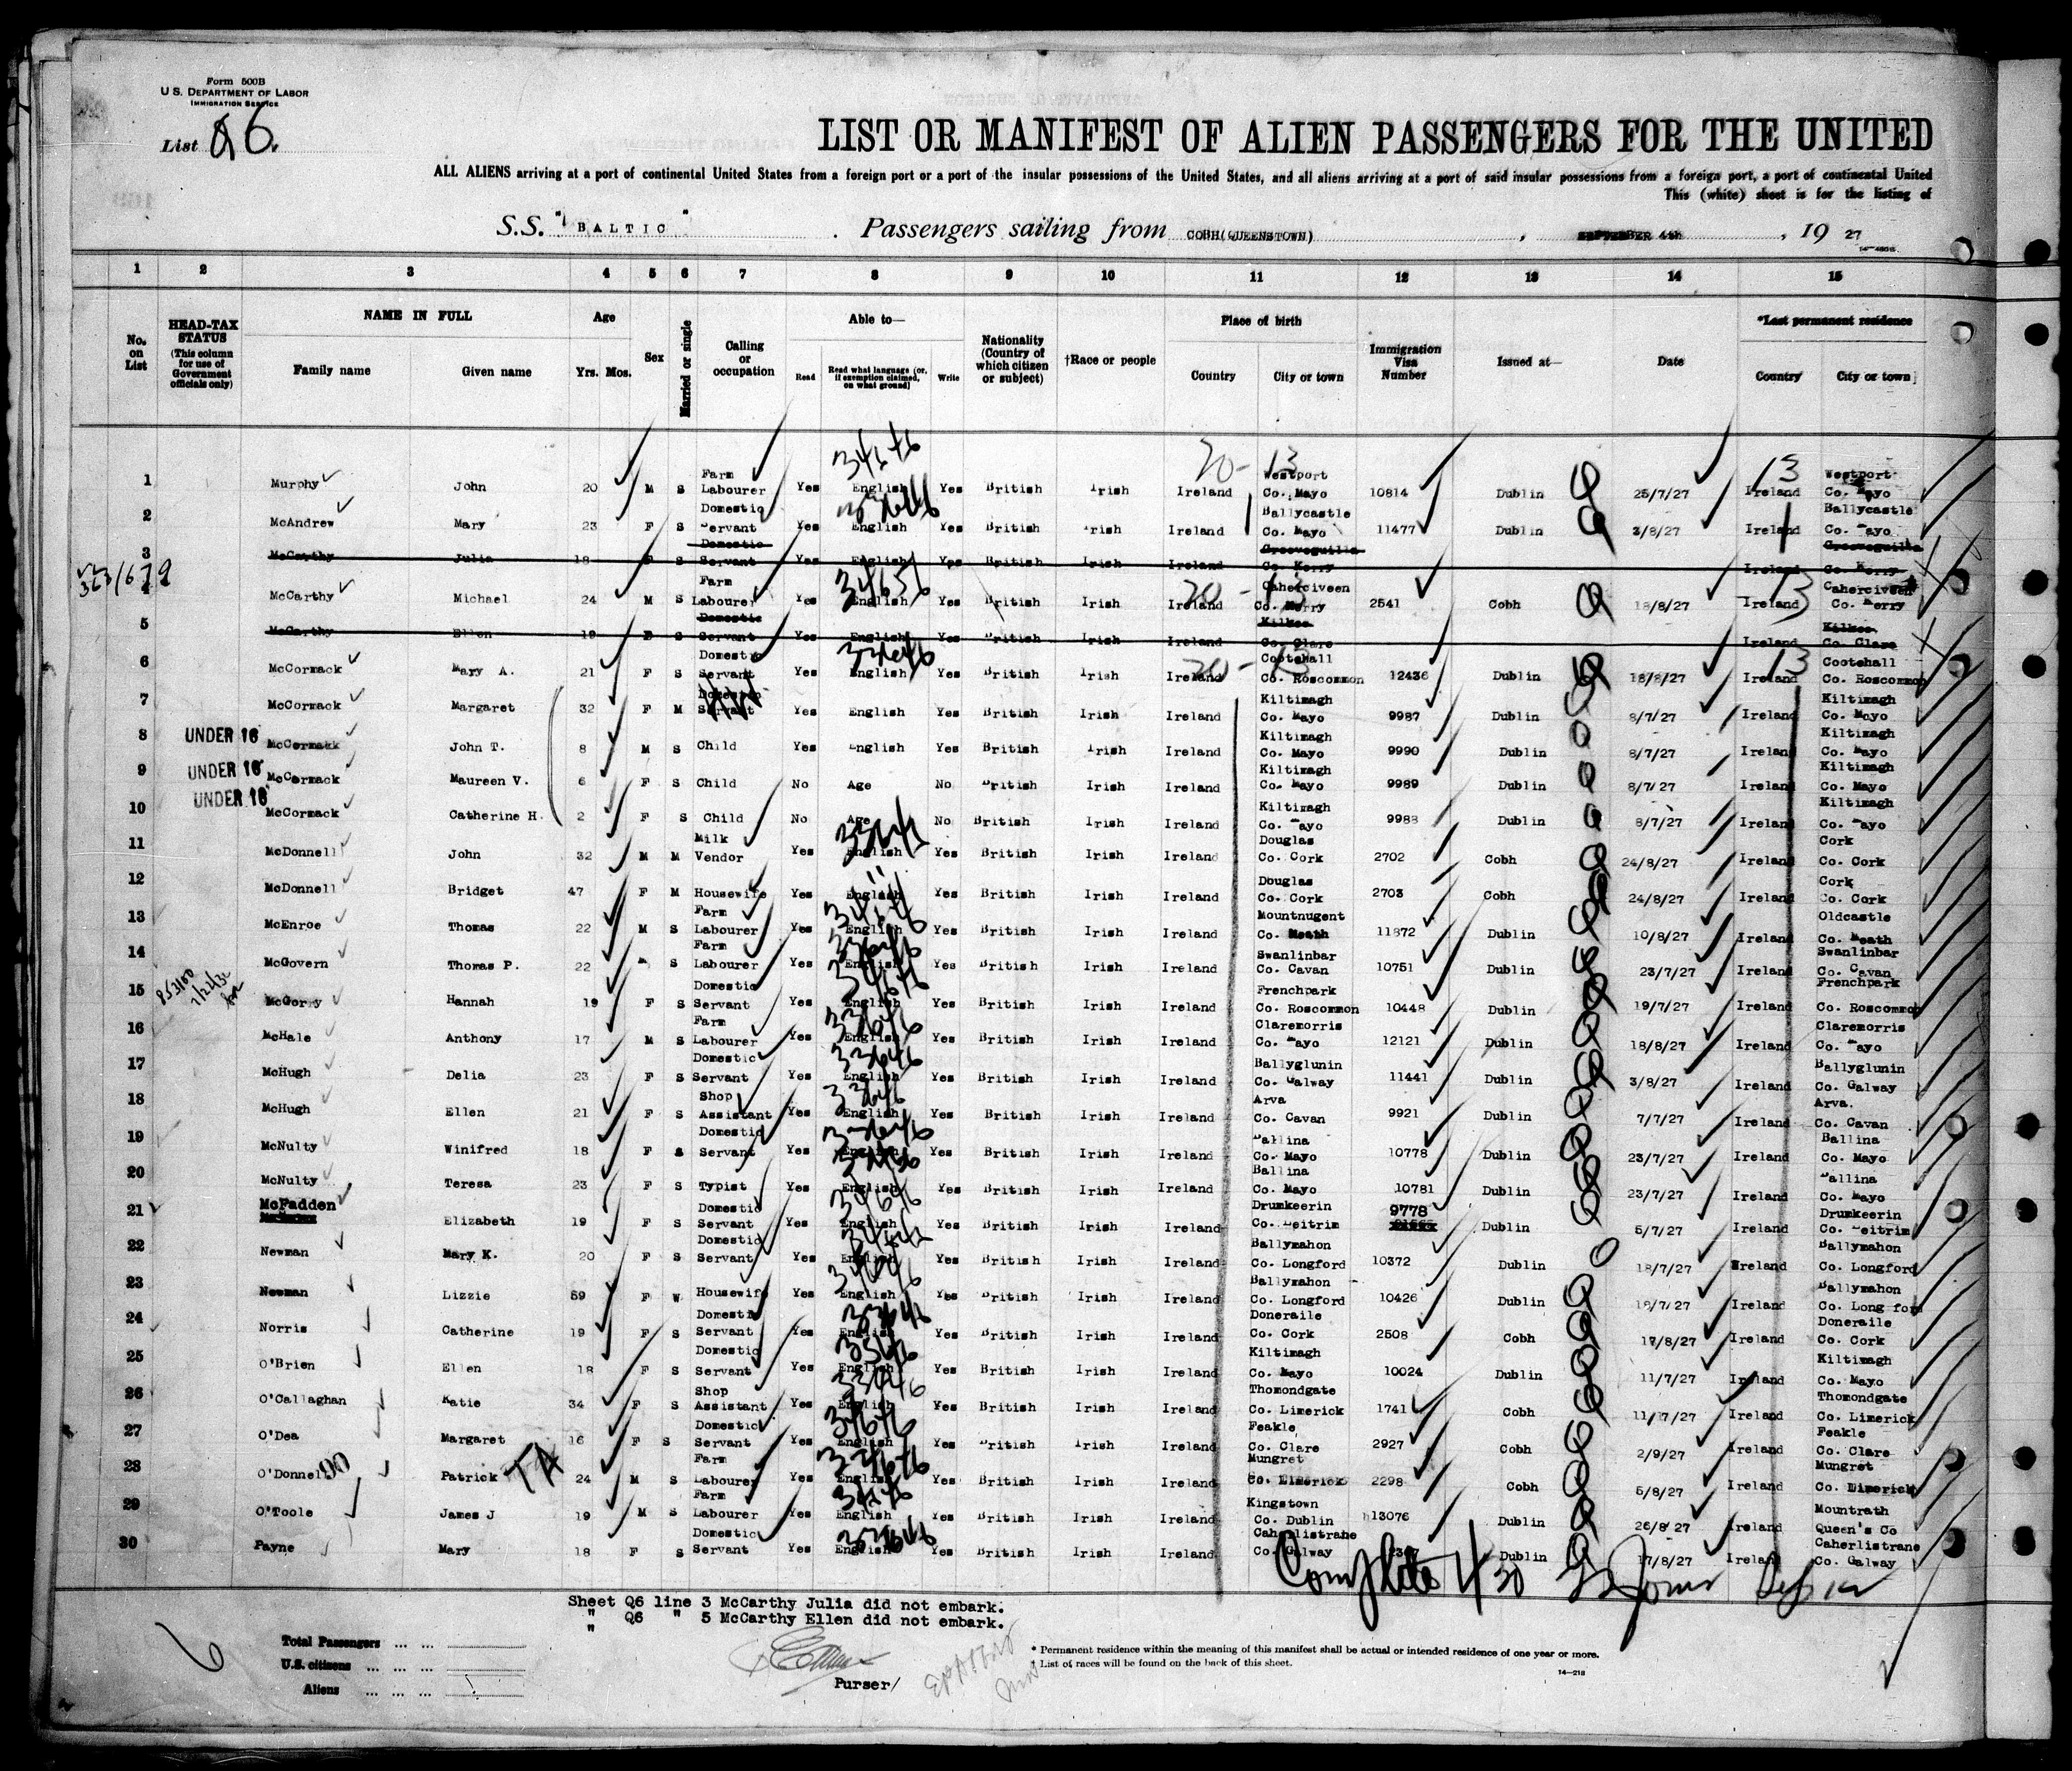 Form 500B
U.S. DEPARTMENT OF LABOR
IMMIGRATION SERVICE
List Q6.
LIST OR MANIFEST OF ALIEN PASSENGERS FOR THE UNITED
ALL ALIENS arriving at a port of continental United States from a foreign port or a port of the insular possessions of the United States, and all aliens arriving at a port of said insular possessions from a foreign port, a port of continental United
This (white) sheet is for the listing of
S.S. "BALTIC". Passengers sailing from COBH(QUEENSTOWN), SEPTEMBER 4th, 19 27
1 2 3 4 5 6 7 8 9 10 11 12 13 14 15
No. on List HEAD-TAX STATUS (This column for use of Government officials only) NAME IN FULL Family name Given name Age Yrs. Mos. Sex Married or single Calling or occupation Able to— Read Read what language (or, if exemption claimed, on what ground) Write Nationality (Country of which citizen or subject) †Race or people Place of birth Country City or town Immigration Visa Number Issued at— Date *Last permanent residence Country City or town
1 Murphy John 20 M S Farm Labourer Yes English Yes British Irish Ireland Westport Co. Mayo 10814 Dublin 25/7/27 Ireland Westport Co. Mayo
2 McAndrew Mary 23 F S Domestic Servant Yes English Yes British Irish Ireland Ballycastle Co. Mayo 11477 Dublin 3/8/27 Ireland Ballycastle Co. Mayo
3 McCarthy Julia 18 F S Domestic Servant Yes English Yes British Irish Ireland Co. Kerry Ireland Co. Kerry
4 McCarthy Michael 24 M S Farm Labourer Yes English Yes British Irish Ireland Caherciveen Co. Kerry 2541 Cobh 18/8/27 Ireland Caherciveen Co. Kerry
5 McCarthy Ellen 19 S Domestic Servant Yes English Yes British Irish Ireland Kilkee Co. Clare Ireland Kilkee Co. Clare
6 McCormack Mary A. 21 F S Domestic Servant Yes English Yes British Irish Ireland Cootehall Co. Roscommon 12436 Dublin 18/8/27 Ireland Cootehall Co. Roscommon
7 McCormack Margaret 32 F M Domestic Servant Yes English Yes British Irish Ireland Kiltimagh Co. Mayo 9987 Dublin 8/7/27 Ireland Kiltimagh Co. Mayo
8 UNDER 16 McCormack John T. 8 M S Child Yes English Yes British Irish Ireland Kiltimagh Co. Mayo 9990 Dublin 8/7/27 Ireland Kiltimagh Co. Mayo
9 UNDER 16 McCormack Maureen V. 6 F S Child No Age No British Irish Ireland Kiltimagh Co. Mayo 9989 Dublin 8/7/27 Ireland Kiltimagh Co. Mayo
10 UNDER 16 McCormack Catherine H. 2 F S Child No Age No British Irish Ireland Kiltimagh Co. Mayo 9988 Dublin 8/7/27 Ireland Kiltimagh Co. Mayo
11 McDonnell John 32 M M Milk Vendor Yes English Yes British Irish Ireland Douglas Co. Cork 2702 Cobh 24/8/27 Ireland Cork Co. Cork
12 McDonnell Bridget 47 F M Housewife Yes English Yes British Irish Ireland Douglas Co. Cork 2703 Cobh 24/8/27 Ireland Cork Co. Cork
13 McEnroe Thomas 22 M S Farm Labourer Yes English Yes British Irish Ireland Mountnugent Co. Meath 11872 Dublin 10/8/27 Ireland Oldcastle Co. Meath
14 McGovern Thomas P. 22 S Farm Labourer Yes English Yes British Irish Ireland Swanlinbar Co. Cavan 10751 Dublin 23/7/27 Ireland Swanlinbar Co. Cavan
15 McGorry Hannah 19 F S Domestic Servant Yes English Yes British Irish Ireland Frenchpark Co. Roscommon 10448 Dublin 19/7/27 Ireland Frenchpark Co. Roscommon
16 McHale Anthony 17 M S Farm Labourer Yes English Yes British Irish Ireland Claremorris Co. Mayo 12121 Dublin 18/8/27 Ireland Claremorris Co. Mayo
17 McHugh Delia 23 F S Domestic Servant Yes English Yes British Irish Ireland Ballyglunin Co. Galway 11441 Dublin 3/8/27 Ireland Ballyglunin Co. Galway
18 McHugh Ellen 21 F S Shop Assistant Yes English Yes British Irish Ireland Arva Co. Cavan 9921 Dublin 7/7/27 Ireland Arva. Co. Cavan
19 McNulty Winifred 18 F S Domestic Servant Yes English Yes British Irish Ireland Ballina Co. Mayo 10778 Dublin 23/7/27 Ireland Ballina Co. Mayo
20 McNulty Teresa 23 F S Typist Yes English Yes British Irish Ireland Ballina Co. Mayo 10781 Dublin 23/7/27 Ireland Ballina Co. Mayo
21 McPadden Elizabeth 19 F S Domestic Servant Yes English Yes British Irish Ireland Drumkeerin Co. Leitrim 9778 Dublin 5/7/27 Ireland Drumkeerin Co. Leitrim
22 Newman Mary K. 20 F S Domestic Servant Yes English Yes British Irish Ireland Ballymahon Co. Longford 10372 Dublin 18/7/27 Ireland Ballymahon Co. Longford
23 Newman Lizzie 59 F W Housewife Yes English Yes British Irish Ireland Ballymahon Co. Longford 10426 Dublin 18/7/27 Ireland Ballymahon Co. Longford
24 Norris Catherine 19 F S Domestic Servant Yes English Yes British Irish Ireland Doneraile Co. Cork 2508 Cobh 17/8/27 Ireland Doneraile Co. Cork
25 O'Brien Ellen 18 F S Domestic Servant Yes English Yes British Irish Ireland Kiltimagh Co. Mayo 10024 Dublin 11/7/27 Ireland Kiltimagh Co. Mayo
26 O'Callaghan Katie 34 F S Shop Assistant Yes English Yes British Irish Ireland Thomondgate Co. Limerick 1741 Cobh 11/7/27 Ireland Thomondgate Co. Limerick
27 O'Dea Margaret 16 F S Domestic Servant Yes English Yes British Irish Ireland Feakle Co. Clare 2927 Cobh 2/9/27 Ireland Feakle Co. Clare
28 O'Donnell Patrick 24 M S Farm Labourer Yes English Yes British Irish Ireland Mungret Co. Limerick 2298 Cobh 5/8/27 Ireland Mungret Co. Limerick
29 O'Toole James J 19 M S Farm Labourer Yes English Yes British Irish Ireland Kingstown Co. Dublin 13076 Dublin 26/8/27 Ireland Mountrath Queen's Co
30 Payne Mary 18 F S Domestic Servant Yes English Yes British Irish Ireland Caherlistrane Co. Galway Dublin 17/8/27 Ireland Caherlistrane Co. Galway
Complete
Sheet Q6 line 3 McCarthy Julia did not embark.
" Q6 " 5 McCarthy Ellen did not embark.
"
6
Total Passengers ... ...
U.S. citizens ... ... ...
Aliens ... ... ...
Purser/
* Permanent residence within the meaning of this manifest shall be actual or intended residence of one year or more.
† List of races will be found on the back of this sheet.
14—218